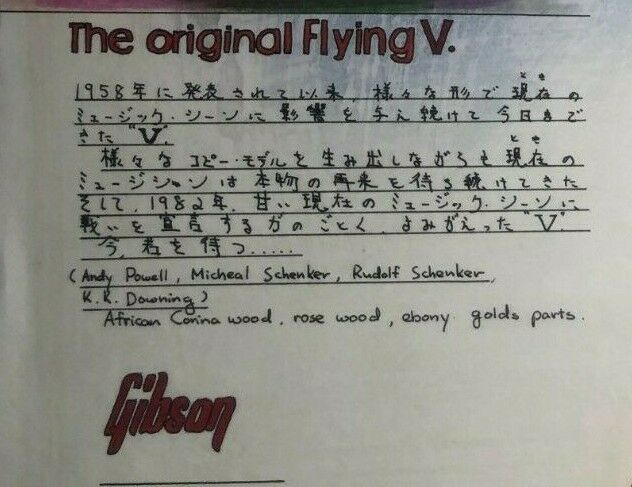 The original Flying V.
とき
1958年に発表されて以来、様々な形で現在の
ミュージック・シーンに影響を与え続けて今日まで
きた "V".
とき
様々なコピー・モデルを生み出しながらも現在の
ミュージシャンは本物の再来を待ち続けてきた
そして、1982年、甘い現在のミュージック・シーンに
戦いを宣言するかのごとく、よみがえった "V".
今、君を待つ……
(Andy Powell, Micheal Schenker, Rudolf Schenker,
K.K. Downing)
African Corina wood, rose wood, ebony golds parts.
Gibson